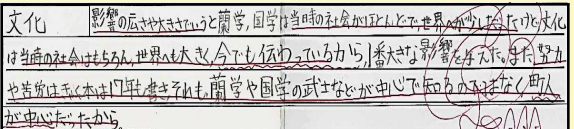 文化 影響の広さや大きさでいうと蘭学,国学は当時の社会がほとんどで,世界へが少しだったけど,文化
は当時の社会はもちろん,世界へも大きく,今でも伝わっているから,1番大きな影響を与えた。また,努力
や苦労は 本は17年も書きそれも,蘭学や国学の武士などが中心で知るの ではなく町人
が中心だったから。